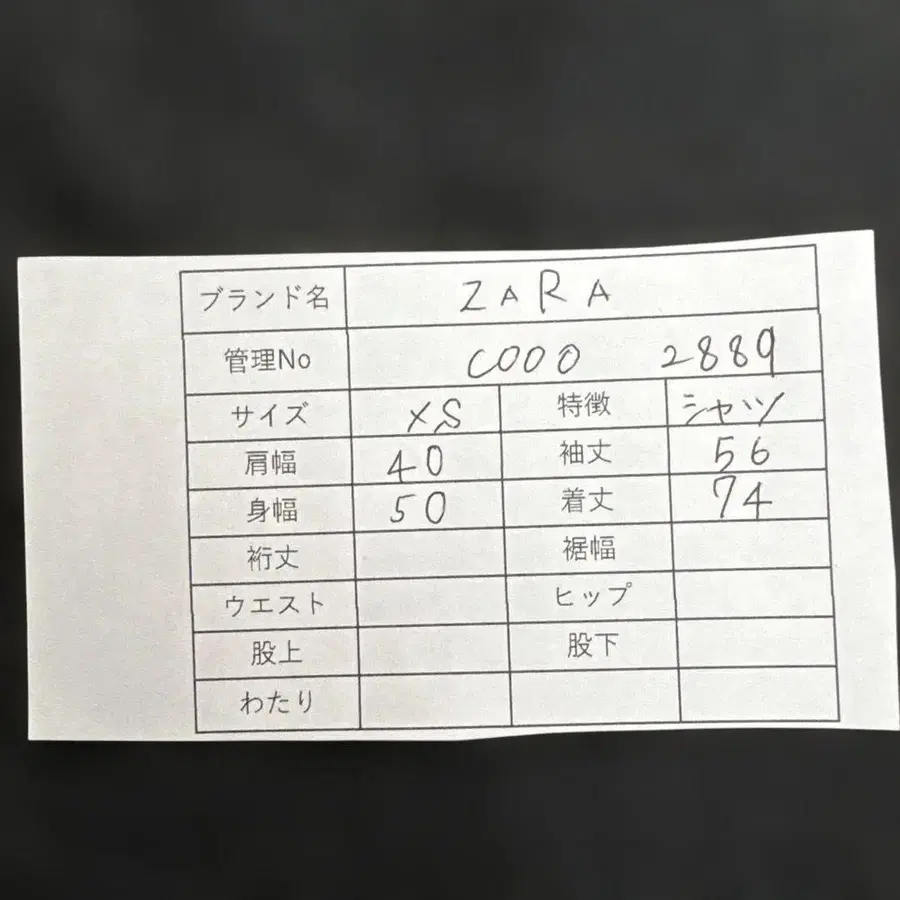 ブランド名 ZARA
管理No C000 2889
サイズ XS 特徴 シャツ
肩幅 40 袖丈 56
身幅 50 着丈 74
裄丈 裾幅
ウエスト ヒップ
股上 股下
わたり